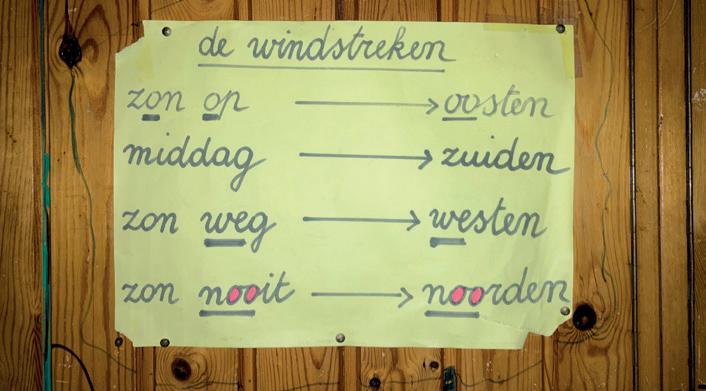 de windstreken
zon op → oosten
middag → zuiden
zon weg → westen
zon nooit → noorden